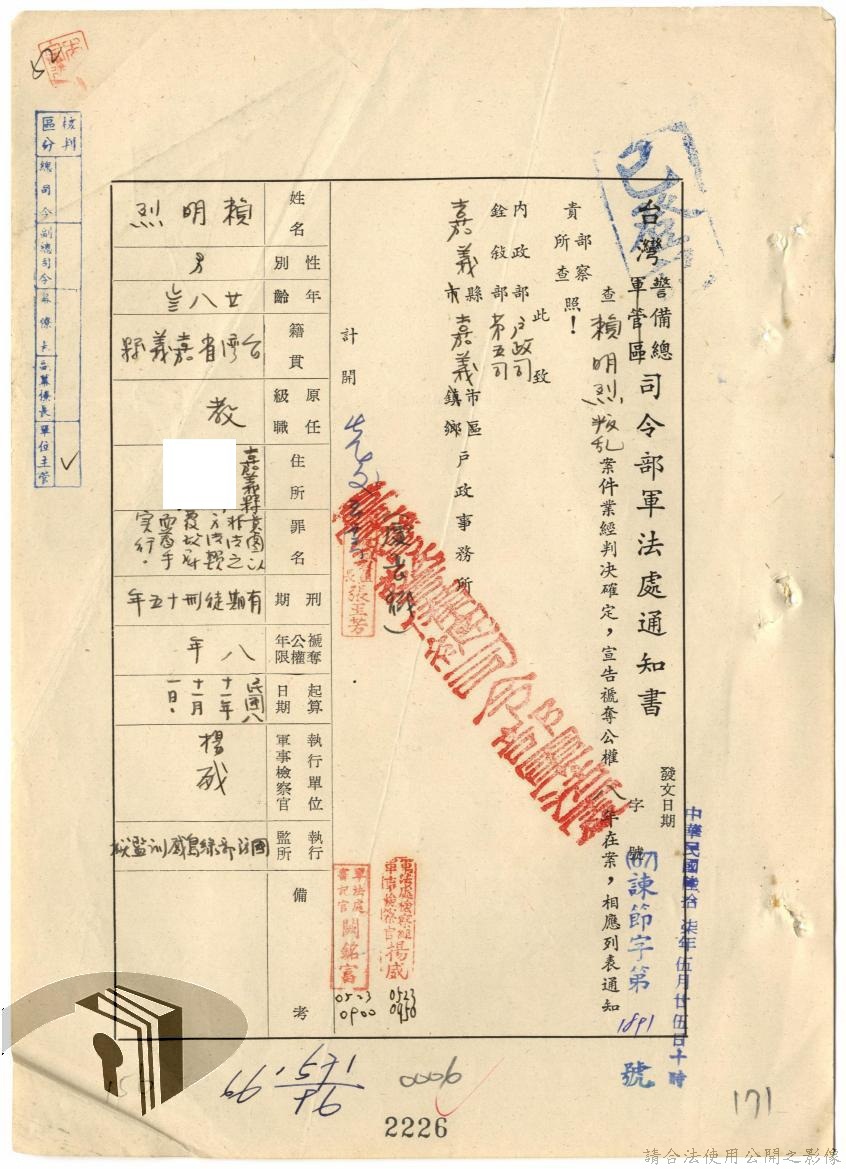 台灣警備總軍管區司令部軍法處通知書
發文日期
中華民國陸拾柒年伍月廿伍日十時
字號
(67)諫節字第1891號
查賴明烈叛乱案件業經判決確定，宣告褫奪公權八年在案，相應列表通知
貴部所察查照！
此致
內政部戶政司
銓敍部第五司
嘉義縣市嘉義市區鎮鄉戶政事務所
計開
姓名
賴明烈
性別
男
年齡
廿八歲
籍貫
台灣省嘉義縣
原任級職
教
住所
嘉義縣
罪名
意圖以非法之方法顛覆政府而着手实行。
刑期
有期徒刑十五年
褫奪公權年限
八年
起算日期
民國八十一年十一月一日。
執行單位軍事檢察官
楊威
執行監所
國防部綠島感訓監獄
備考
張玉芳
軍法處檢察組
軍事檢察官楊威
0523
0950
軍法處
書記官闕銘富
0523
0900
核判區分
總司令
副總司令
參謀長
單位主管
✓
0006
2226
171
請合法使用公開之影像